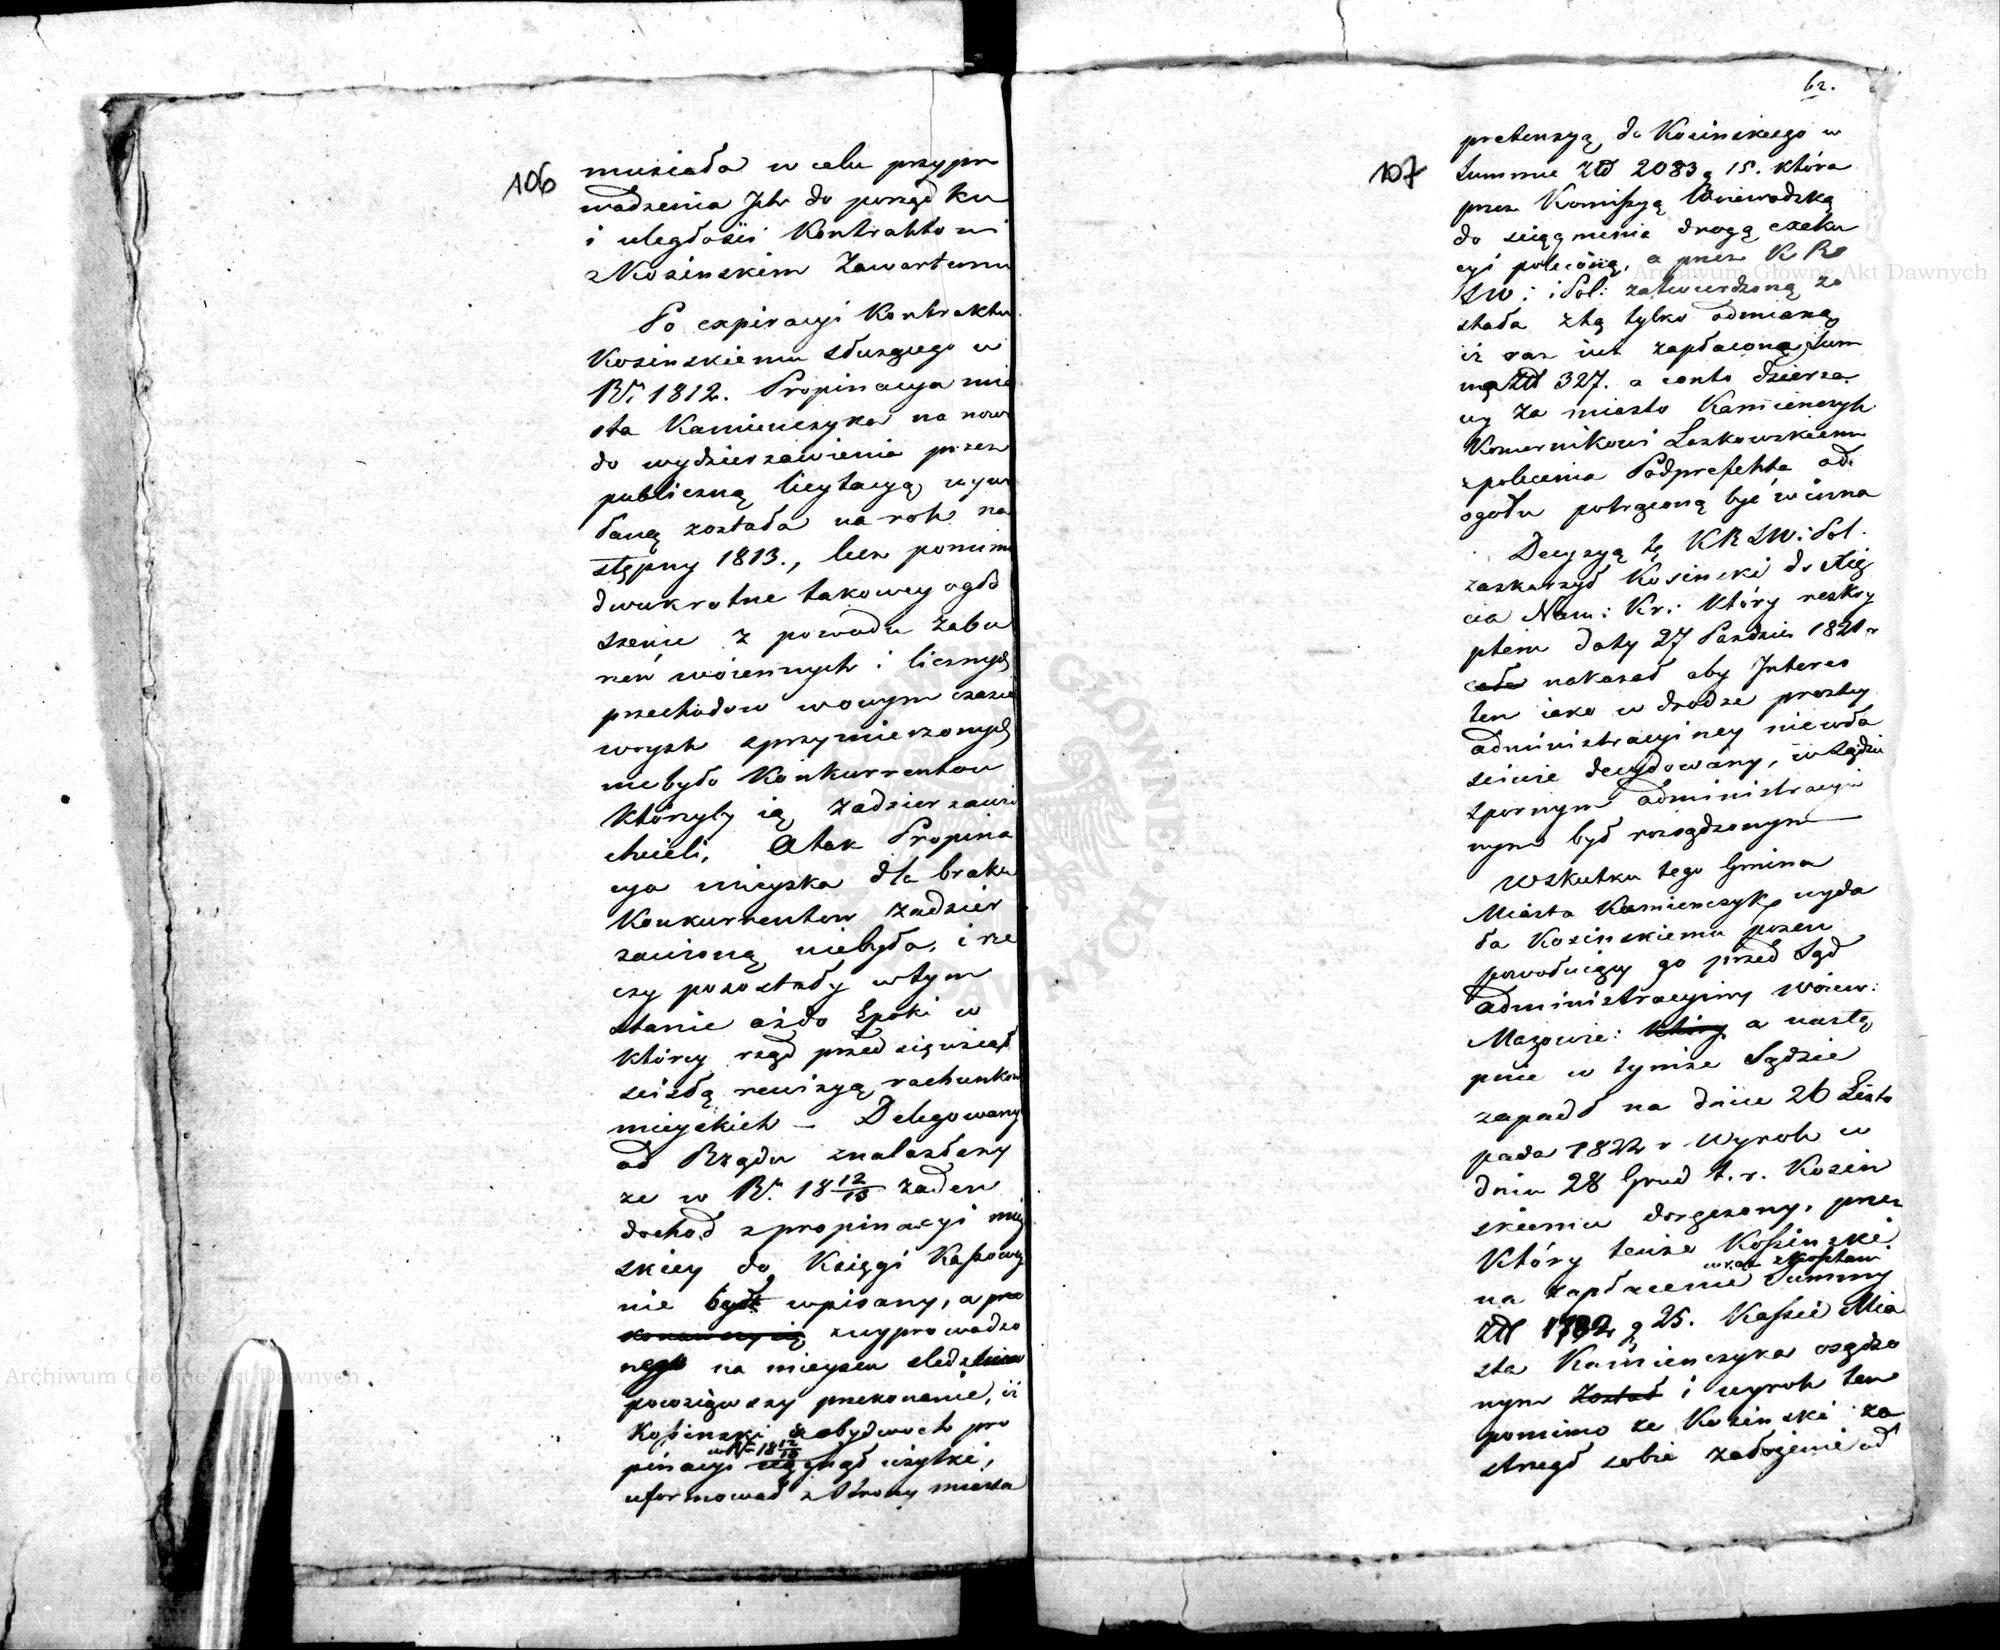 106
musiała w celu przypro
wadzenia Ich do porządku
i uległości Kontraktowi
z Kosinskim zawartemu
Po expiracyi Kontraktu
Kosinskiemu służącego w
R. 1812. Propinacya mia
sta Kamienczyka na nowo
do wydzierzawienia przez
publiczną licytacyą wywo
łaną została na rok na
stępny 1813., lecz pomimo
dwukrotne takowey ogło
szenie z powodu zabu
rzeń woiennych i licznych
przechodow w owym czasie
woysk sprzymierzonych
niebyło Konkurrentow
którzyby ią zadzierzawić
chcieli, A tak Propina
cya mieyska dla braku
Konkurrentow zadzier
zawioną niebyła, i rze
czy pozostały w tym
stanie aż do Epoki w
którey rząd przedsięwziął
scisłą rewizyą rachunkow
mieyskich – Delegowany
od Rządu znalazłszy
ze w R. 18 12/13 zaden
dochod z propinacyi miey
skiey do Księgi Kassowey
nie był wpisany, a prze
zwyprowadzo
nego na mieyscu sledztwa
powziąwszy przekonanie, iż
Kosinski z obydwoch pro
w R. 18 12/13
pinacyi ciągnął użytki,
uformował z strony miasta
62.
107
pretensyą do Kosinskiego w
Summie Złł 2083 g 15. która
przez Komissyą Woiewodzką
do sciągnienia drogą exeku
cyi poleconą, a przez K R
S W: i Pol: zatwierdzoną zo
stała z tą tylko odmianą
iż raz iuż zapłacona Sum
ma Złł 327. a conto dzierza
wy za miasto Kamienczyk
Komornikowi Laskowskiemu
z polecenia Podprefekta od
ogołu potrąconą być winna
Decyzyą tę K R S W: i Pol.
zaskarzył Kosinski do Xię
cia Nam: Kr: Który reskry
ptem daty 27 Pazdzier 1821 r
nakazał aby Interes
ten iako w drodze prostey
administracyiney niewła
sciwie decydowany, w Sądzie
spornym administracyi
nym był rozsądzonym
W skutku tego Gmina
Miasta Kamienczyk wyda
ła Kosinskiemu pozew
powołuiący go przed Sąd
administracyiny Woiew:
Mazowie: Który a nastę
pnie w tymże Sądzie
zapadł na dniu 26 Listo
pada 1822 r Wyrok w
dniu 28 Grud t. r. Kosin
skiemu doręczony, przez
Który tenże Kosinski
wraz z Kosztami
na zapłacenie Summy
Złł 1782 g 25. Kassie Mia
sta Kamienczyka osądzo
nym został i wyrok ten
pomimo ze Kosinski za
strzegł sobie założenie od
Archiwum Główne Akt Dawnych
Archiwum Główne Akt Dawnych